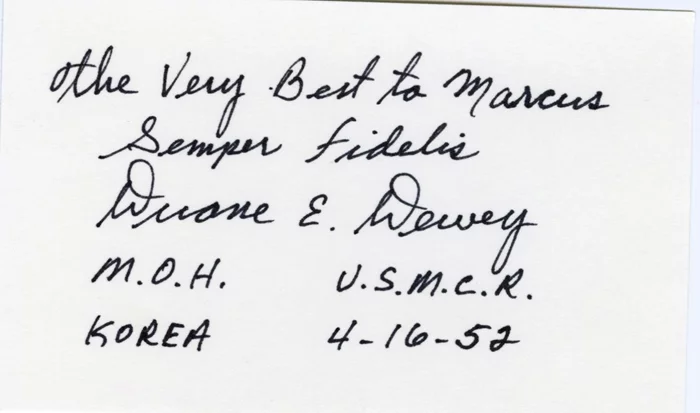 The Very Best to Marcus
Semper Fidelis
Duane E. Dewey
M.O.H. U.S.M.C.R.
KOREA 4-16-52